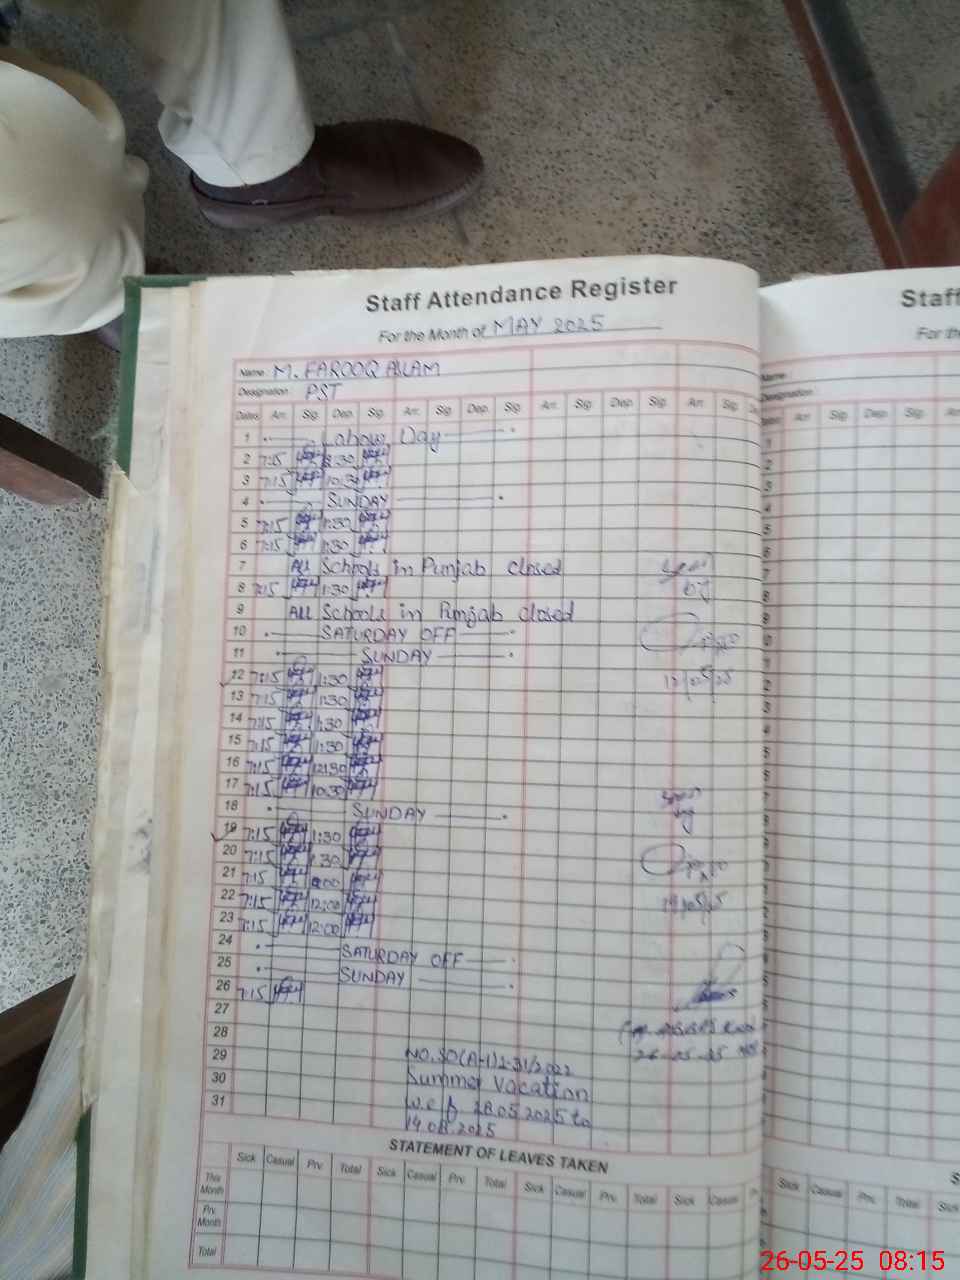 Staff Attendance Register
For the Month of MAY 2025
Name: M. FAROOQ ASLAM
Designation: PST
Dates Arr. Sig. Dep. Sig. Arr. Sig. Dep. Sig. Arr. Sig. Dep. Sig. Arr. Sig.
1 Labour Day
2 7:15 :30
3 7:15 10:30
4 SUNDAY
5 7:15 1:30
6 7:15 1:30
7 All Schools in Punjab closed
8 7:15 1:30
9 All Schools in Punjab closed
10 SATURDAY OFF
11 SUNDAY
12 7:15 1:30
13 7:15 1:30
14 7:15 1:30
15 7:15 1:30
16 7:15 12:30
17 7:15 10:30
18 SUNDAY
19 7:15 1:30
20 7:15 1:30
21 7:15 :00
22 7:15 12:00
23 7:15 12:00
24 SATURDAY OFF
25 SUNDAY
26 7:15
27
28
29 NO.SO(A-I)1-31/2022
30 Summer Vacation
31 w.e.f 28.05.2025 to
14.08.2025
12/05/25
19/05/25
26-05-25
STATEMENT OF LEAVES TAKEN
Sick Casual Prv. Total Sick Casual Prv. Total Sick Casual Prv. Total Sick Casual
This Month
Prv. Month
Total
Staff
For the
Name:
Designation:
Arr. Sig. Dep. Sig. Arr.
Sick Casual Prv. Total Sick
26-05-25 08:15